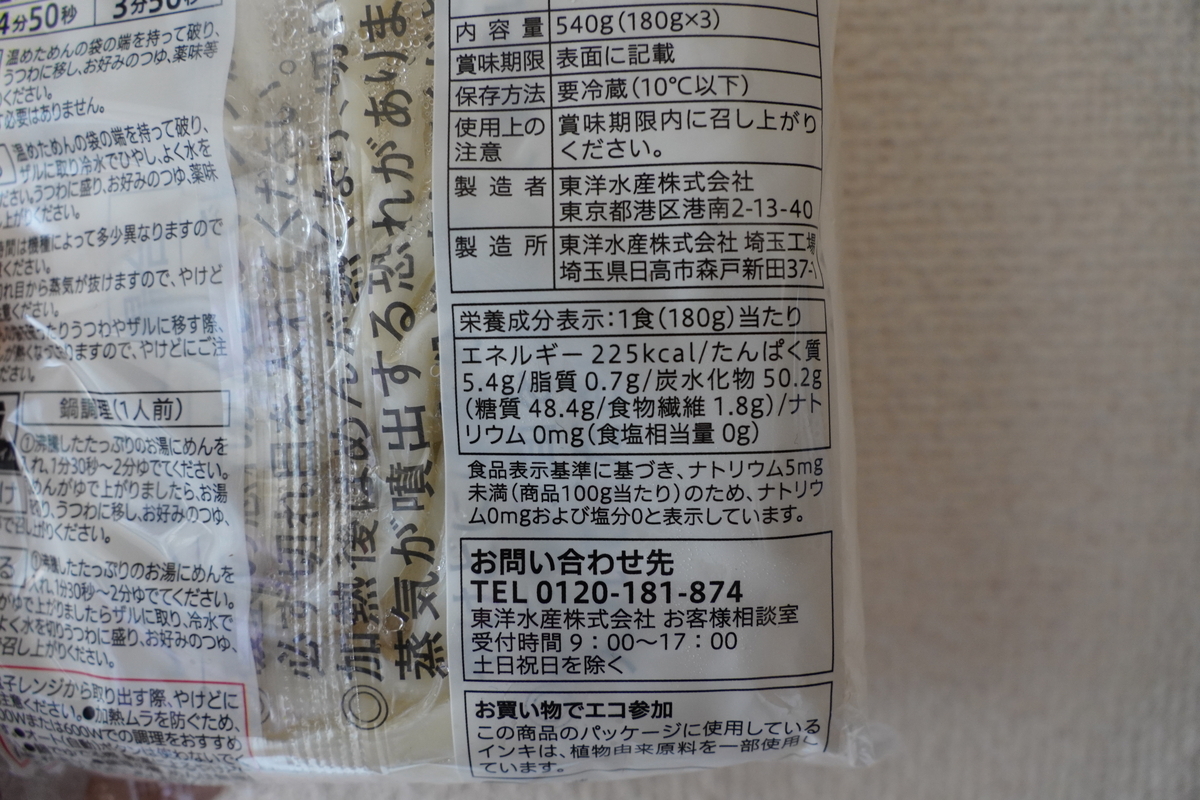 4分50秒
3分50秒
温めためんの袋の端を持って破り、
うつわに移し、お好みのつゆ、薬味等
ください。
必要はありません。
温めためんの袋の端を持って破り、
ザルに取り冷水でひやし、よく水を
ださい。うつわに盛り、お好みのつゆ、薬味
上がりください。
時間は機種によって多少異なりますので
ください。
れ目から蒸気が抜けますので、やけど
ください。
たりうつわやザルに移す際、
が熱くなっておりますので、やけどにご注
ださい。
鍋調理(1人前)
①沸騰したたっぷりのお湯にめんを
れ、1分30秒～2分ゆでてください。
めんがゆで上がりましたら、お湯
り、うつわに移し、お好みのつゆ、
で召し上がりください。
①沸騰したたっぷりのお湯にめんを
入れ、1分30秒～2分ゆでてください。
がゆで上がりましたらザルに取り、冷水で
よく水を切りうつわに盛り、お好みのつゆ、
召し上がりください。
子レンジから取り出す際、やけどに
注意ください。●加熱ムラを防ぐため、
00Wまたは600Wでの調理をおすすめ
必ず切れ目を入れてください。
◎加熱後はめんが熱くなり、切
蒸気が噴出する恐れがありま
内容量 540g(180g×3)
賞味期限 表面に記載
保存方法 要冷蔵(10℃以下)
使用上の注意 賞味期限内に召し上がり
ください。
製造者 東洋水産株式会社
東京都港区港南2-13-40
製造所 東洋水産株式会社 埼玉工場
埼玉県日高市森戸新田37-1
栄養成分表示:1食(180g)当たり
エネルギー 225kcal/たんぱく質
5.4g/脂質 0.7g/炭水化物 50.2g
(糖質 48.4g/食物繊維 1.8g)/ナト
リウム 0mg(食塩相当量 0g)
食品表示基準に基づき、ナトリウム5mg
未満(商品100g当たり)のため、ナトリウ
ム0mgおよび塩分0と表示しています。
お問い合わせ先
TEL 0120-181-874
東洋水産株式会社 お客様相談室
受付時間 9：00～17：00
土日祝日を除く
お買い物でエコ参加
この商品のパッケージに使用している
インキは、植物由来原料を一部使用し
ています。